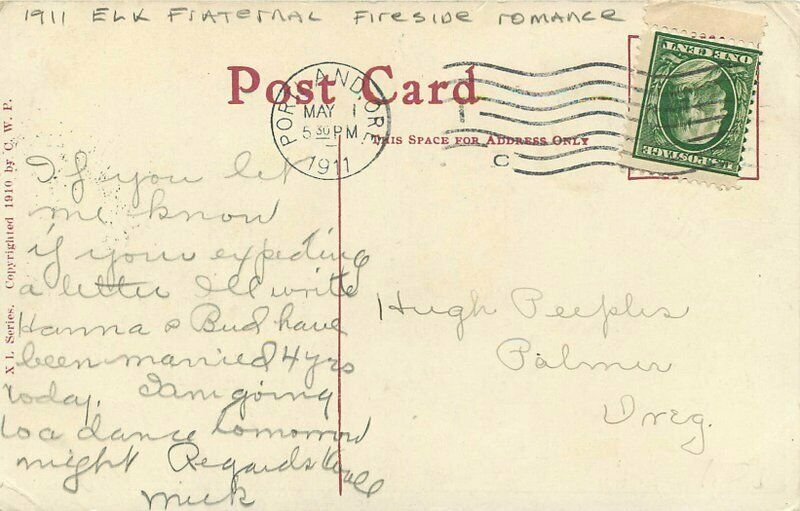 1911 ELK FRATERNAL FIRESIDE ROMANCE
Post Card
THIS SPACE FOR ADDRESS ONLY
PORTLAND, ORE
MAY 1
5 30 PM
1911
C
ONE CENT
U.S. POSTAGE
X L Series. Copyrighted 1910 by C. W. P.
If you let
me know
if your expecting
a letter I'll write
Hanna & Bud have
been married 4 yrs
today. I am going
to a dance tomorrow
night Regards to all
Mick
Hugh Peeples
Palmer
Oreg.